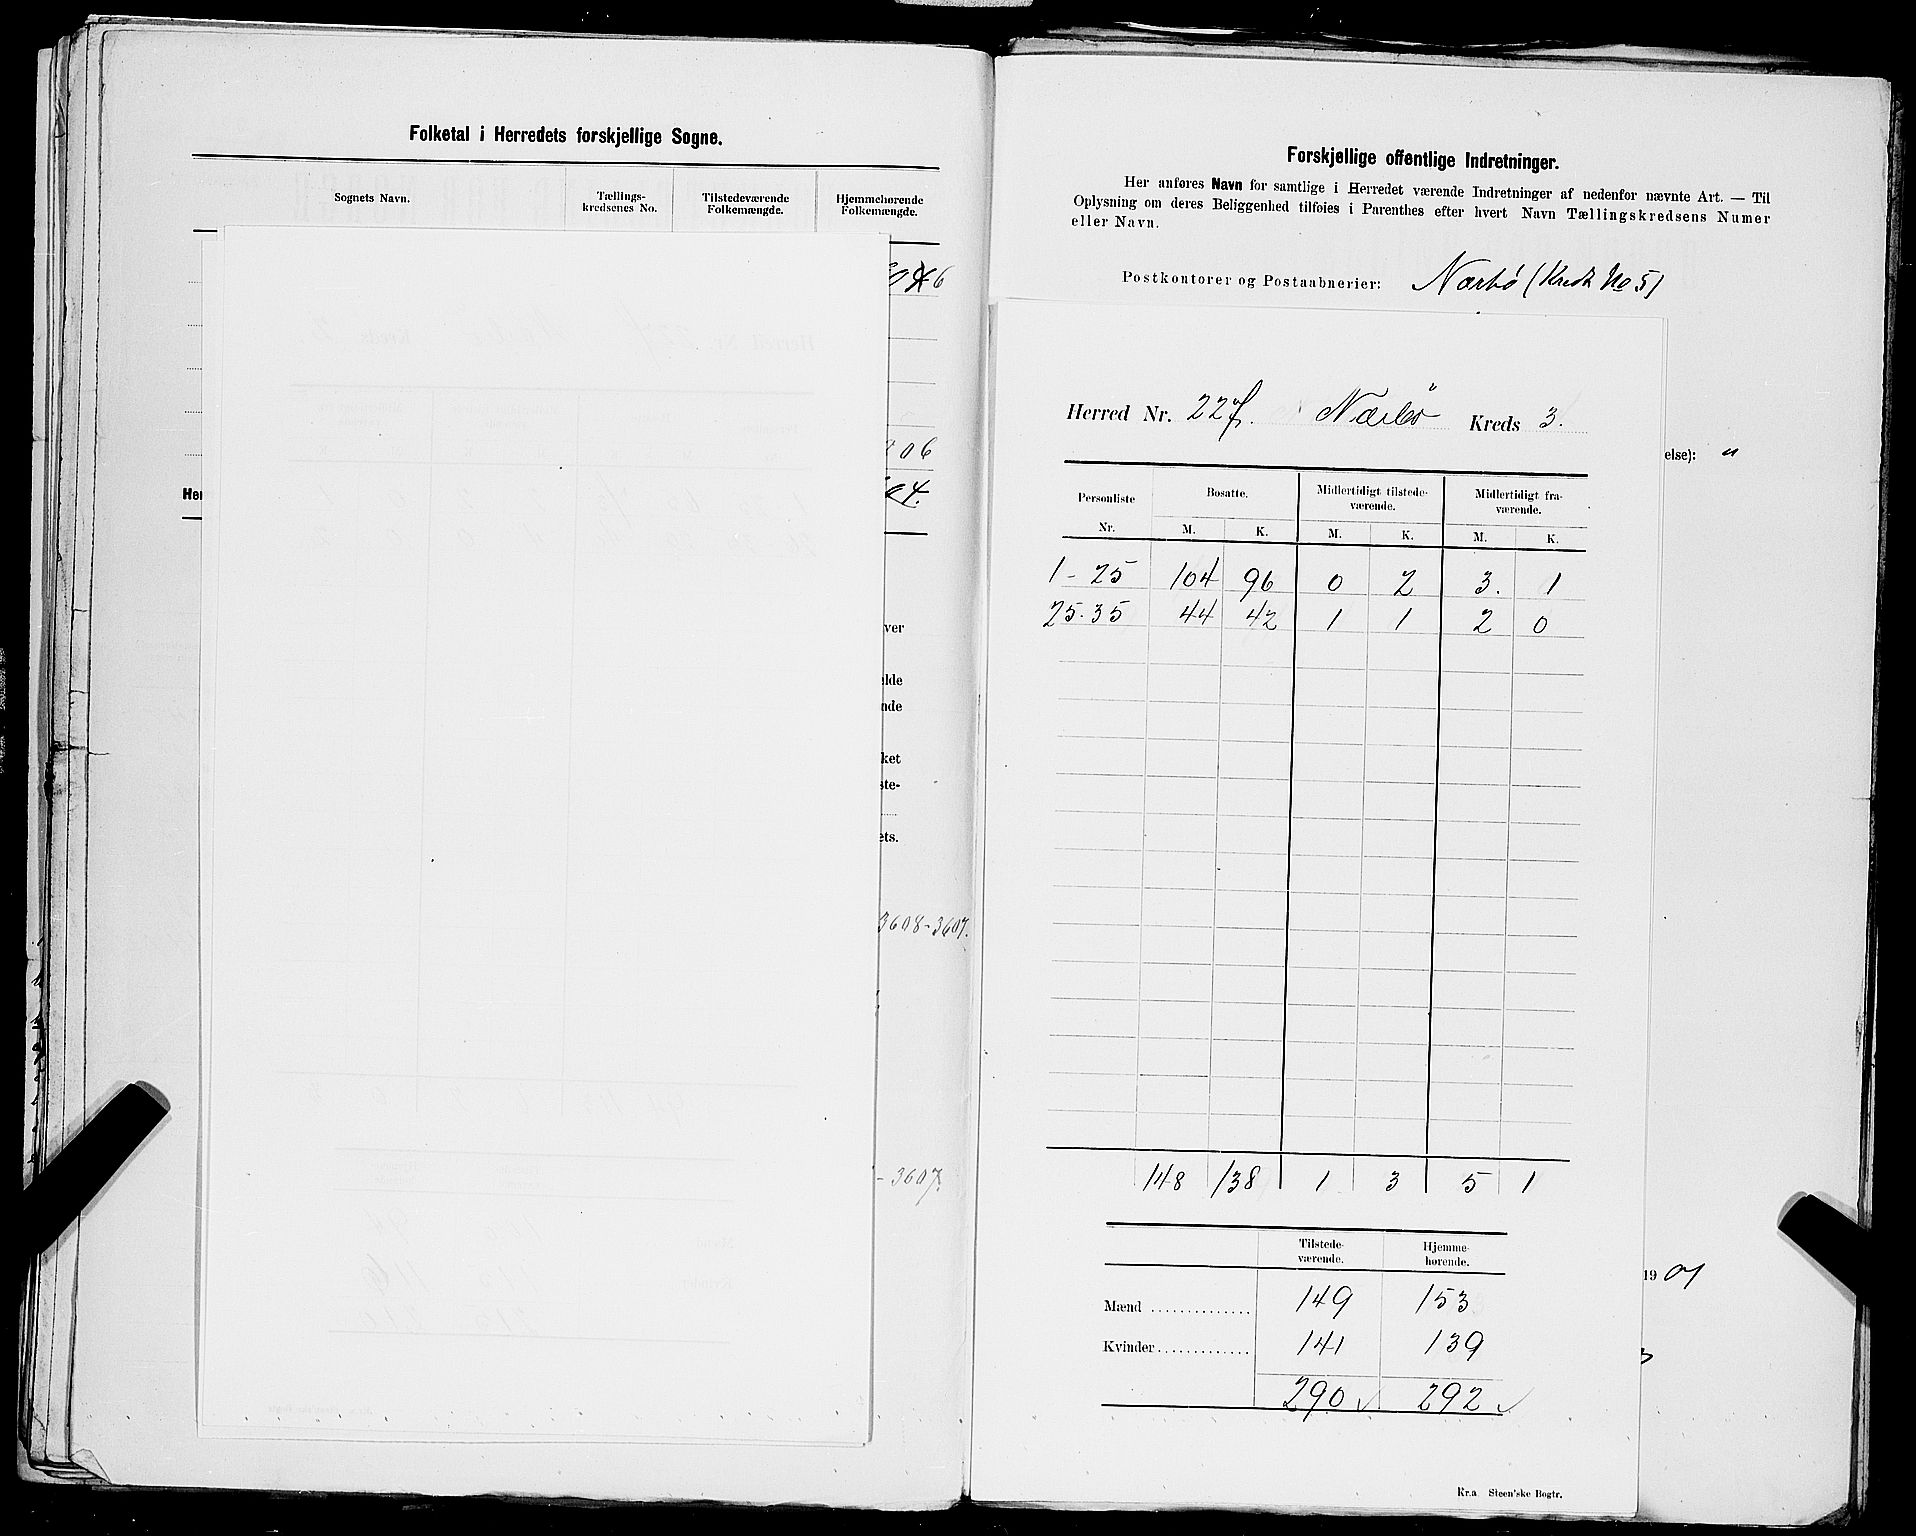 Folketal i Herredets forskjellige Sogne.
Sognets Navn. Tællings- kredsenes No. Tilstedeværende Folkemængde. Hjemmehørende Folkemængde.
06
04.
Her
ver
lde
nde
ket
ste-
ets.
3608-3607.
-3607.
Forskjellige offentlige Indretninger.
Her anføres Navn for samtlige i Herredet værende Indretninger af nedenfor nævnte Art. — Til
Oplysning om deres Beliggenhed tilføies i Parenthes efter hvert Navn Tællingskredsens Numer
eller Navn.
Postkontorer og Postaabnerier: Nærbö (Kreds No 5)
Herred Nr. 227. Nærbö Kreds 3.
else): "
Personliste Nr. Bosatte. Midlertidigt tilstede- værende. Midlertidigt fra- værende.
M. K. M. K. M. K.
1-25 104 96 0 2 3. 1
25.35 44 42 1 1 2 0
148 138 1 3 5 1
Tilstede- værende. Hjemme- hørende.
19 01
Mænd .............. 149 153
Kvinder ............. 141 139
290 ✓ 292 ✓
Kr.a Steen'ske Bogtr.